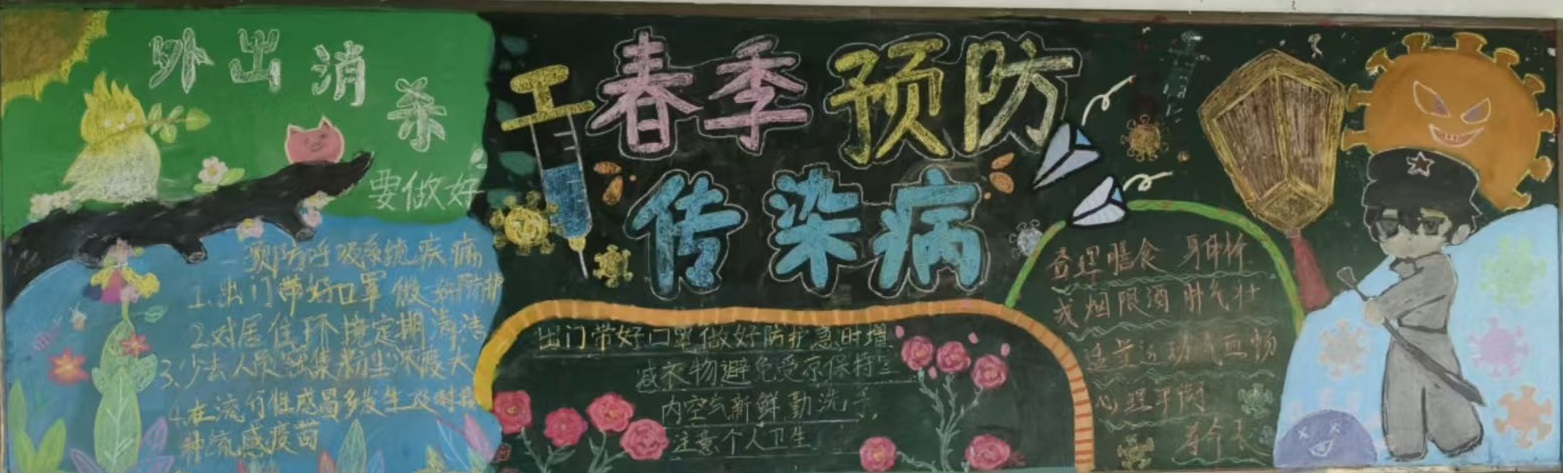 外出消杀
要做好
预防呼吸系统疾病
1.出门带好口罩做好防护
2.对居住环境定期清洁
3.少去人员密集粉尘浓度大
4.在流行性感冒多发生及时接
种流感疫苗
春季预防
传染病
出门带好口罩做好防护急时增
减衣物避免受凉保持室
内空气新鲜勤洗手
注意个人卫生
合理膳食 身体
戒烟限酒 肺气壮
适量运动
心理平衡
寿命长